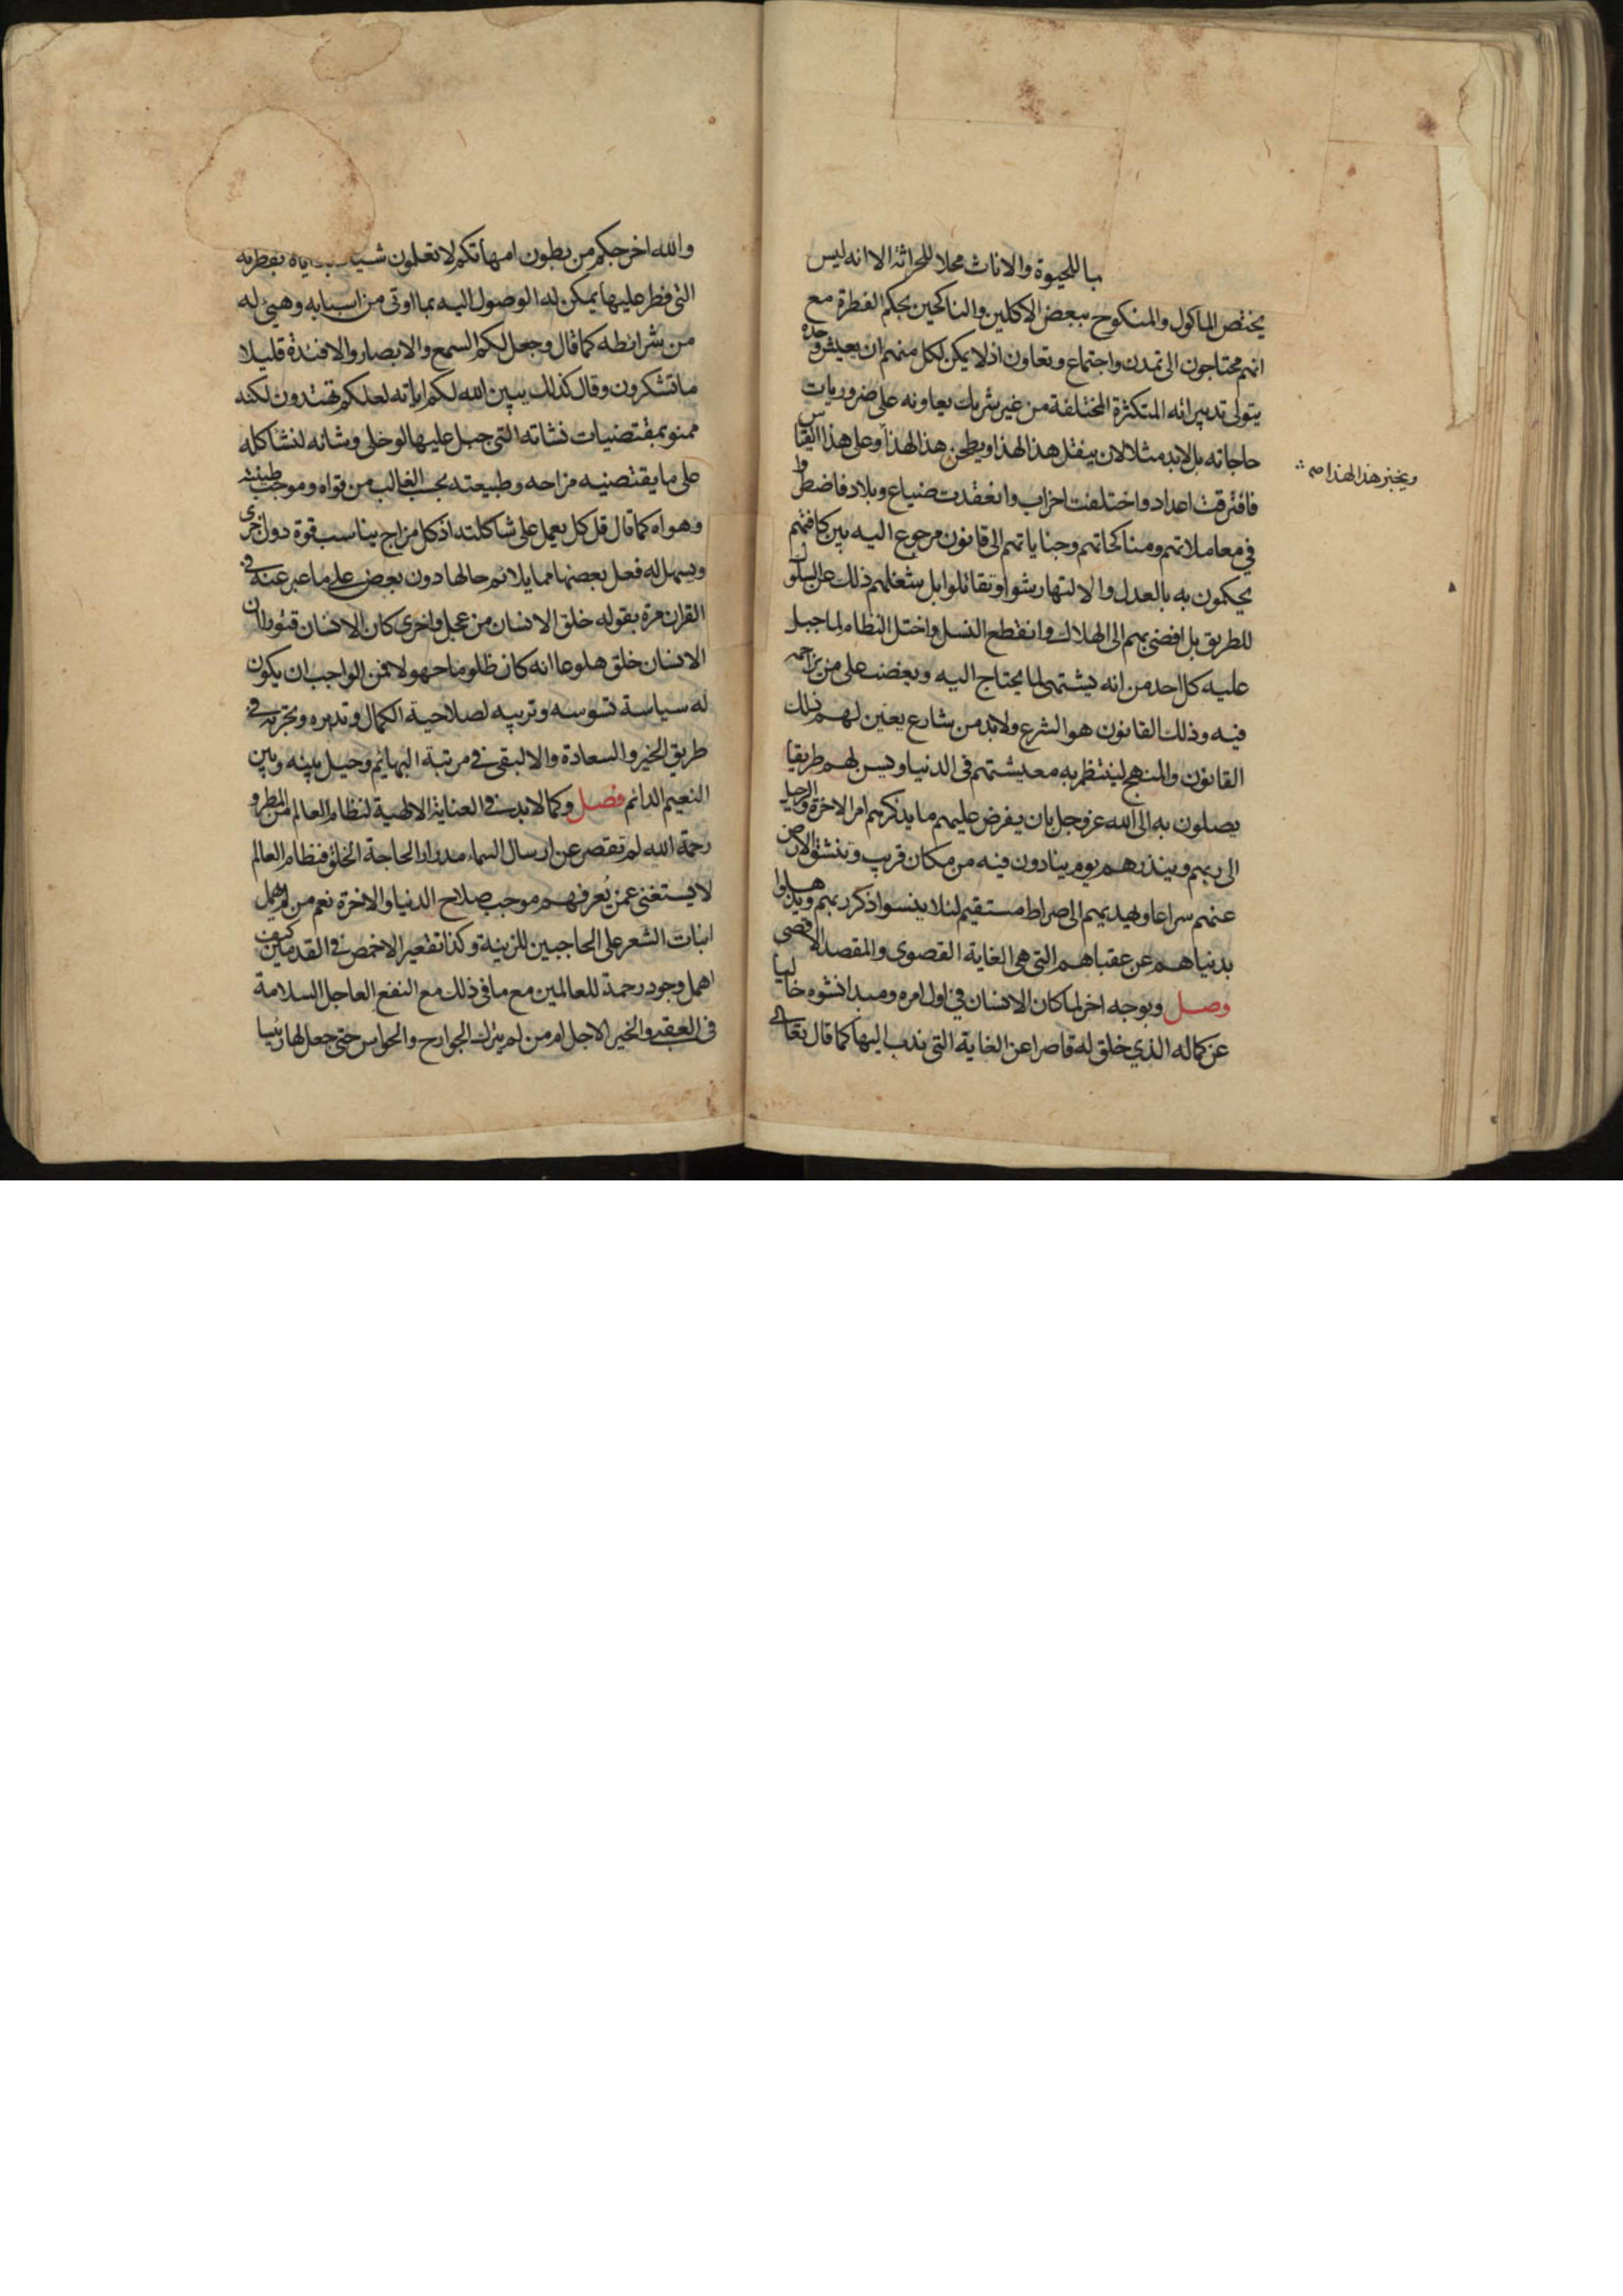 باللحيوة والاناث محلا للحراثة الا انه ليس
يختص الماكول والمنكوح ببعض الاكلين والناكحين بحكم الفطرة مع
انهم محتاجون الى تمدن واجتماع وتعاون اذ لا يمكن لكل منهم ان يعيش وحده
يتولى تدبيراته المتكثرة المختلفة من غير شريك يعاونه على ضروريات
حاجاته بل لابد مثلا لان ينقل هذا لهذا ويطحن هذا لهذا وعلى هذا القياس
ويخبز هذا لهذا صح
فافترقت اعداد واختلفت احزاب وانعقدت ضياع وبلاد فاضطروا
في معاملاتهم ومناكحاتهم وجناياتهم الى قانون مرجوع اليه بين كافتهم
يحكمون به بالعدل والا لتهارشوا وتقاتلوا بل شغلهم ذلك عن السلوك
للطريق بل افضى بهم الى الهلاك وانقطع النسل واختل النظام لما جبل
عليه كل احد من انه يشتهي لما يحتاج اليه ويغضب على من يزاحمه
فيه وذلك القانون هو الشرع ولابد من شارع يعين لهم ذلك
القانون والمنهج لينتظم به معيشتهم في الدنيا ويسن لهم طريقا
يصلون به الى الله عز وجل بان يفرض عليهم ما يذكرهم امر الاخرة والرحيل
الى ربهم وينذرهم يوم ينادون فيه من مكان قريب وتنشق الارض
عنهم سراعا ويهديهم الى صراط مستقيم لئلا ينسوا ذكر ربهم ويذهلوا
بدنياهم عن عقباهم التي هي الغاية القصوى والمقصد الاقصى
وصل وبوجه اخر لما كان الانسان في اول امره ومبدا نشوه خاليا
عن كماله الذي خلق له قاصرا عن الغاية التي ندب اليها كما قال تعالى
والله اخرجكم من بطون امهاتكم لا تعلمون شيا بفطرته
التي فطر عليها يمكن له الوصول اليه بما اوتى من اسبابه وهيئ له
من شرائطه كما قال وجعل لكم السمع والابصار والافئدة قليلا
ما تشكرون وقال كذلك يبين الله لكم اياته لعلكم تهتدون لكنه
ممنو بمقتضيات نشاته التي جبل عليها لو خلى وشانه لنشا كله
على ما يقتضيه مزاجه وطبيعته بحسب الغالب من قواه وموجب طينته
وهواه كما قال قل كل يعمل على شاكلته اذ كل مزاج يناسب قوة دون اخرى
ويسهل له فعل بعضها مما يلائم حالها دون بعض على ما عبر عنه في
القران مرة بقوله خلق الانسان من عجل واخرى كان الانسان قتورا ان
الانسان خلق هلوعا انه كان ظلوما جهولا فمن الواجب ان يكون
له سياسة تسوسه وتربيه لصلاحية الكمال وتدبره وتجربه في
طريق الخير والسعادة والا لبقى في مرتبة البهائم وحيل بينه وبين
النعيم الدائم فصل وكما لابد في العناية الالهية لنظام العالم من المطر و
رحمة الله لم تقصر عن ارسال السماء مدرارا لحاجة الخلق فنظام العالم
لا يستغنى عمن يُعرفهم موجب صلاح الدنيا والاخرة نعم من لم يهمل
انبات الشعر على الحاجبين للزينة وكذا تقعير الاخمص في القدمين كيف
اهمل وجود رحمة للعالمين مع ما في ذلك مع النفع العاجل السلامة
في العقبى والخير الاجل ام من لم يترك الجوارح والحواس حتى جعل لها رئيسا